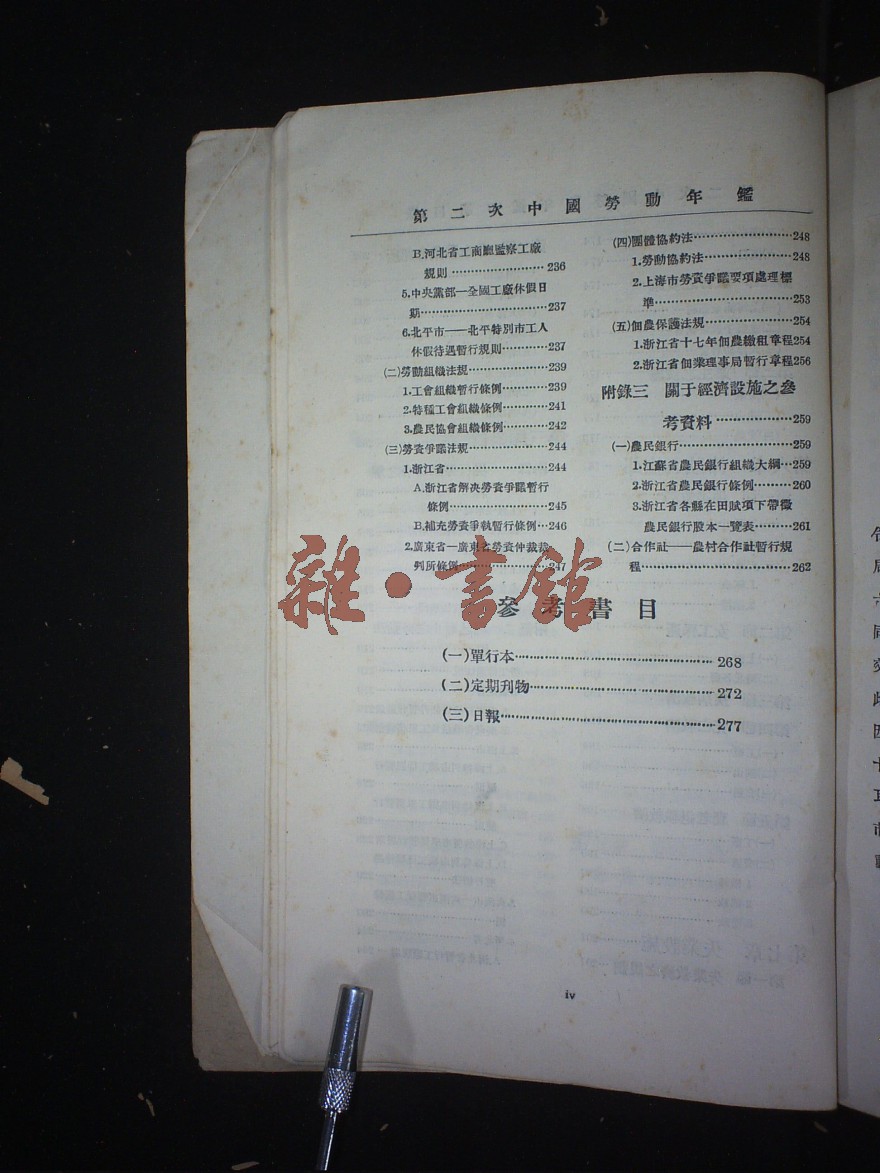 第二次中國勞動年鑑
B.河北省工商廳監察工廠
規則………………………236
5.中央黨部—全國工廠休假日
期……………………………237
6.北平市——北平特別市工人
休假待遇暫行規則…………237
(二)勞動組織法規……………………239
1.工會組織暫行條例…………239
2.特種工會組織條例…………241
3.農民協會組織條例…………242
(三)勞資爭議法規……………………244
1.浙江省…………………………244
A.浙江省解决勞資爭議暫行
條例…………………………245
B.補充勞資爭執暫行條例…246
2.廣東省—廣東省勞資仲裁裁
判所條例……………………247
(四)團體協約法………………………248
1.勞動協約法……………………248
2.上海市勞資爭議要項處理標
準………………………………253
(五)佃農保護法規……………………254
1.浙江省十七年佃農繳租章程254
2.浙江省佃業理事局暫行章程256
附錄三 關于經濟設施之參
考資料………………259
(一)農民銀行…………………………259
1.江蘇省農民銀行組織大綱…259
2.浙江省農民銀行條例………260
3.浙江省各縣在田賦項下帶徵
農民銀行股本一覽表………261
(二)合作社——農村合作社暫行規
程………………………………262
參考書目
(一)單行本……………………………268
(二)定期刊物…………………………272
(三)日報………………………………277
iv
雜·書館